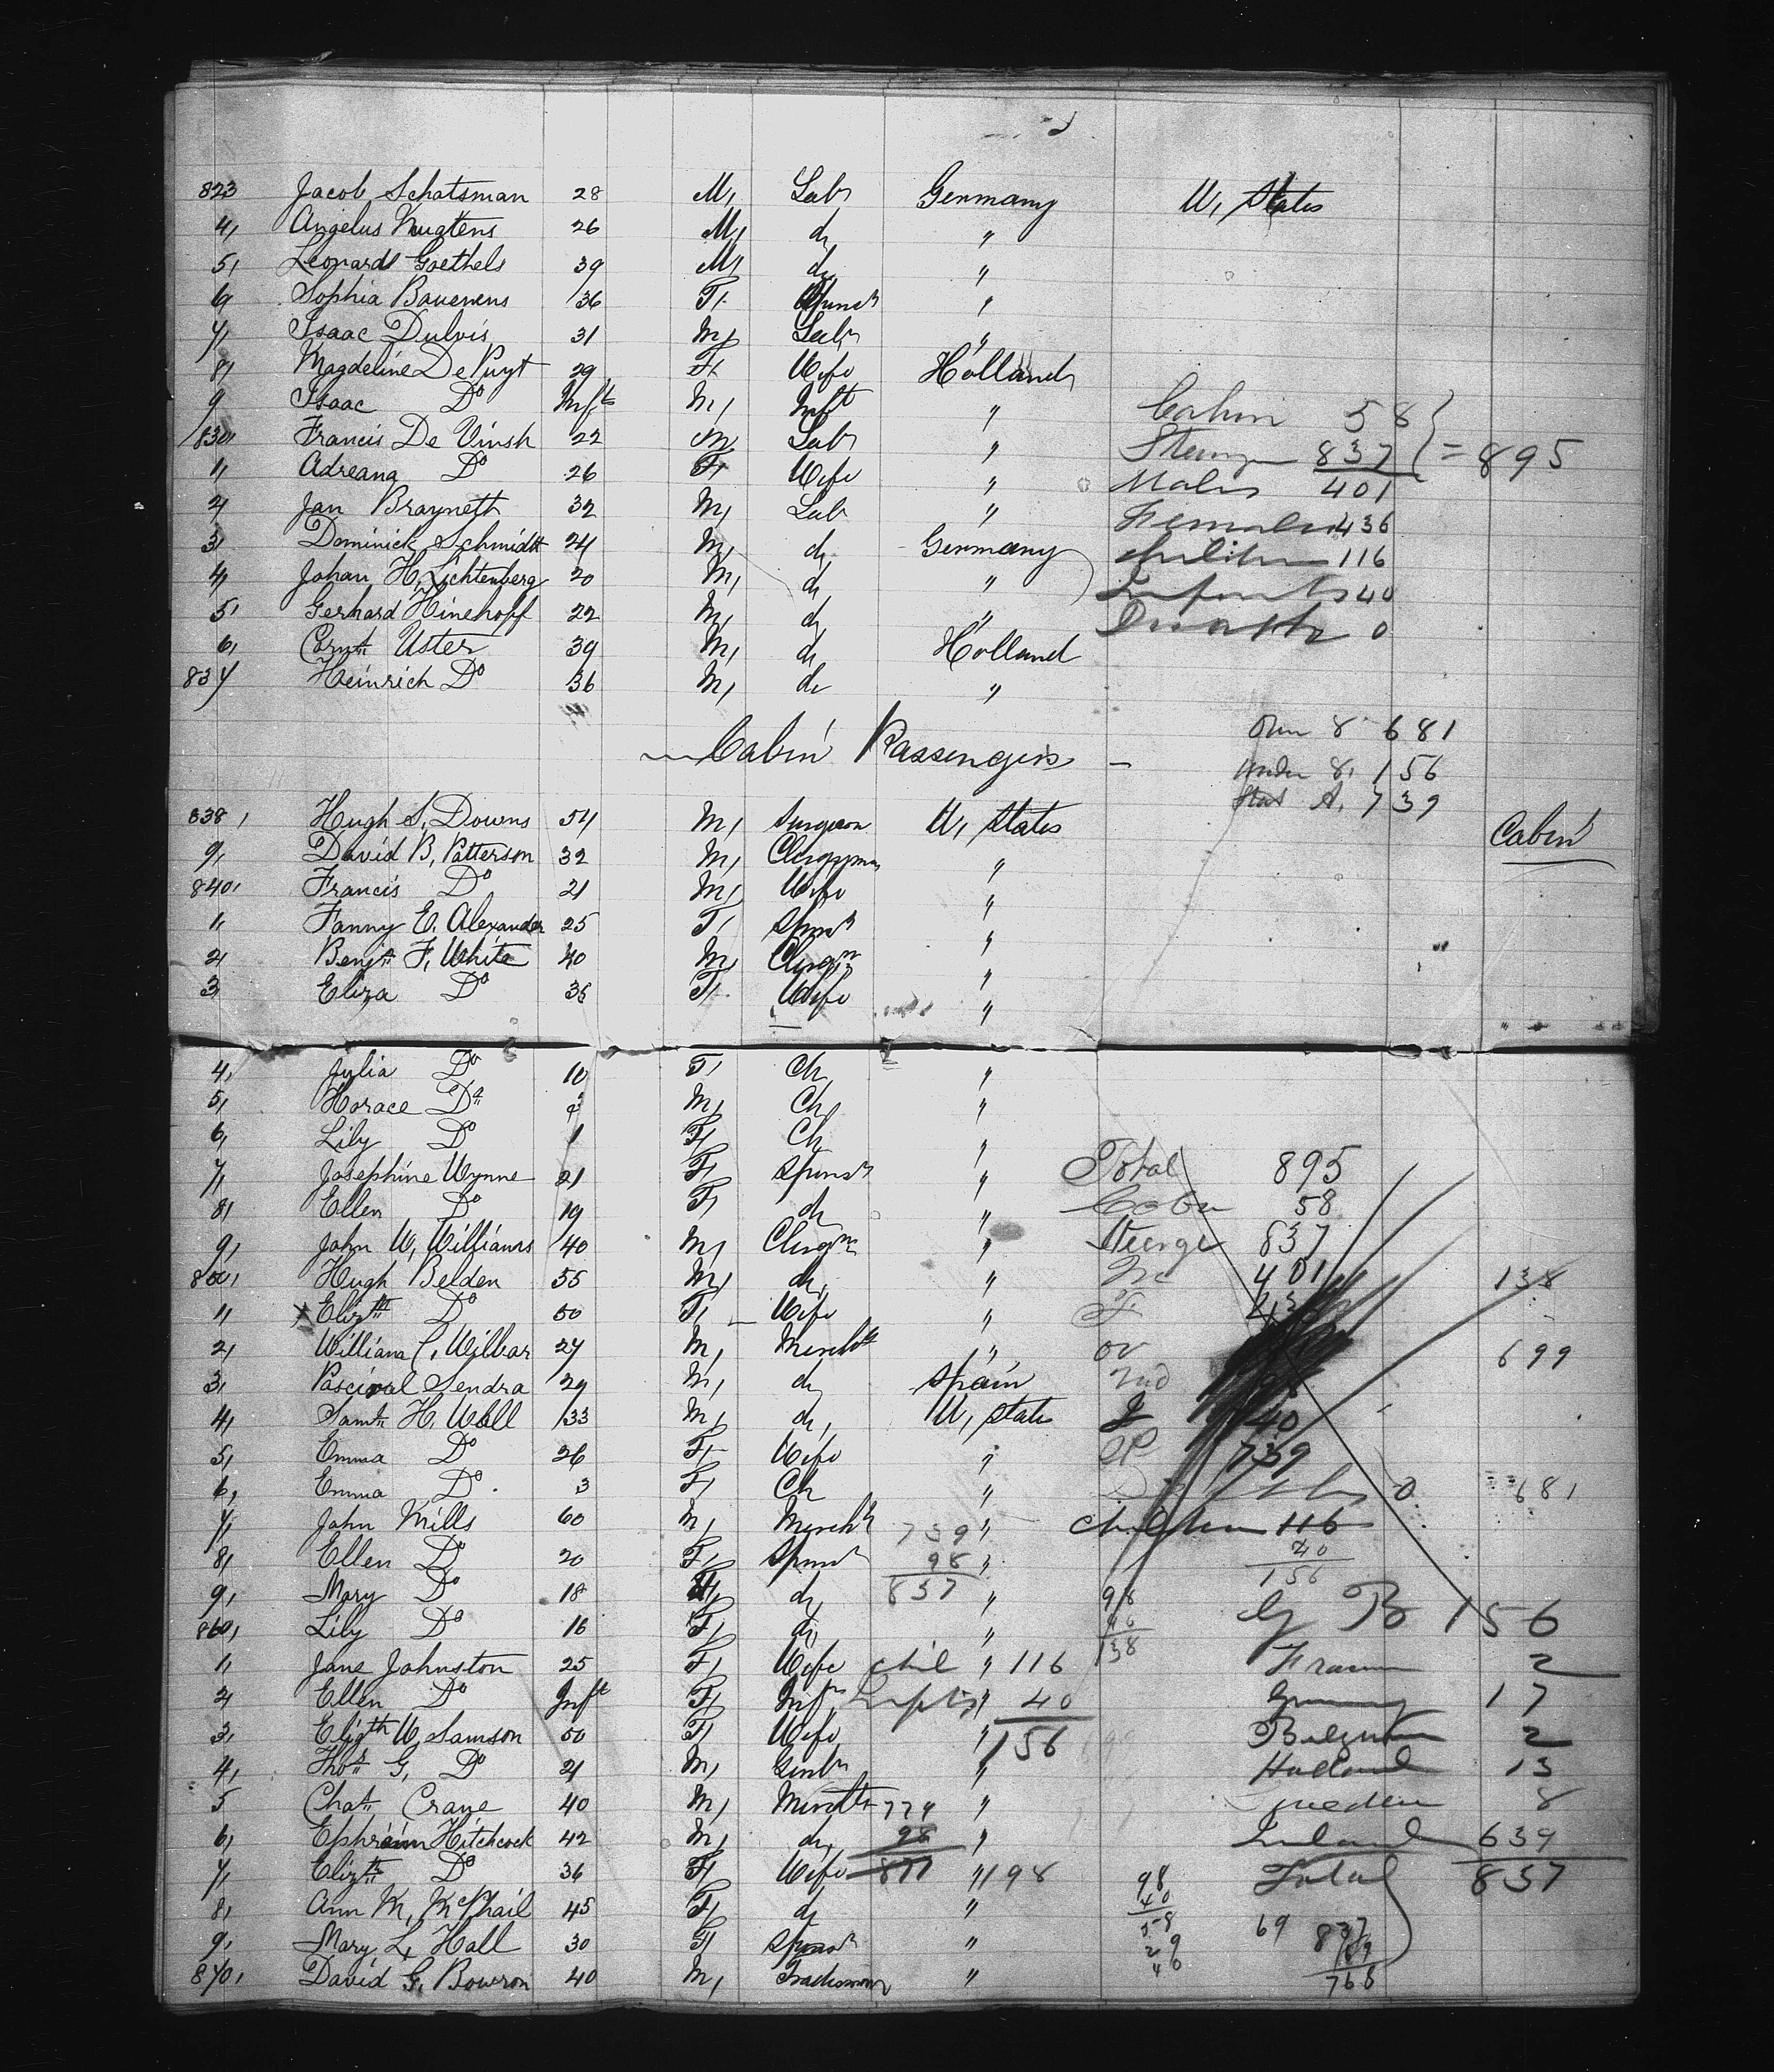 823 Jacob Schatsman 28 M, Labr Germany U, States
4, Angelus Mugtens 26 M, do "
5, Leonard Goethels 39 M, do "
6 Sophia Bauenens 36 F, Spinsr "
7, Isaac Dulvis 31 M, Labr "
8, Magdeline De Puyt 29 F, Wife Holland
9 Isaac Do Inft M, Inft " Cabin 58
830, Francis De Vinsh 22 M, Labr " Steerage 837 = 895
1, Adreana Do 26 F, Wife " Males 401
2, Jan Brayneth 32 M, Lab " Females 436
3, Dominick Schmidtt 24 M, do Germany Children 116
4, Johan H, Lichtenberg 20 M, do " Infants 40
5, Gerhard Hinehoff 22 M, do " Deaths 0
6, Corns Uster 39 M, do Holland
837 Heinrich Do 36 M, do "
Cabin Passengers
Over 8 681
Under 8, 156
Stat A, 739
838, Hugh S, Downs 54 M, Surgeon U, States Cabin
9, David B, Patterson 32 M, Clergyman "
840, Francis Do 21 M, Wife "
1, Fanny E. Alexander 25 F, Spinsr "
2, Benjn F, White 40 M, Clergn "
3, Eliza Do 35 F, Wife "
4, Julia Do 10 F, Ch "
5, Horace Do M, Ch "
6, Lily Do 1 F, Ch "
7, Josephine Wynne 21 F, Spinsr " Total 895
8, Ellen Do 19 F, do " Cabin 58
9, John W, Williams 40 M, Clergn " Steerge 837
850, Hugh Belden 55 M, do " M 401 138
1, Elizth Do 50 F, Wife " F
2, William C, Wilbar 27 M, Merchtt " ov 699
3, Pascival Sendra 29 M, do Spain Und
4, Saml H. Wall 33 M, do, U, States 40
5, Emma Do 26 F, Wife " 739
6, Emma Do 3 F, Ch " 0 681
7, John Mills 60 M, Mercht 739 " Children 116
8, Ellen Do 20 F, Spinsr 98 " 40
9, Mary Do 18 F, do 837 " 98 156
860, Lily Do 16 F, do " 40 G B 156
1, Jane Johnston 25 F, Wife chil " 116 138 France 2
2, Ellen Do Inft F, Inft Infts " 40 Germany 17
3, Elizth W, Samson 50 F, Wife " 156 Belgium 2
4, Thos G, Do 21 M, Gentn " Holland 13
5 Chas Crane 40 M, Merchtt 779 " Sweden 8
6, Ephraim Hitchcock 42 M, do 98 " Ireland 639
7, Elizth Do 36 F, Wife 877 " 98 98 Total 837
8, Ann M, McPhail 45 F, do " 40
9, Mary L, Hall 30 F, Spinsr " 58 69 837
870, David G, Bowron 40 M, Tradesman " 768